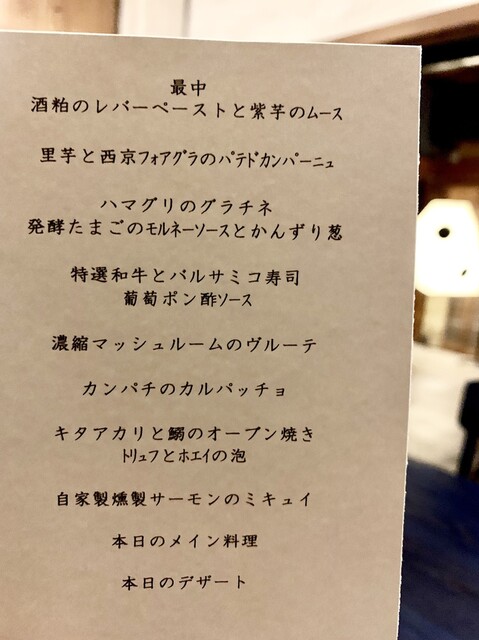 最中
酒粕のレバーペーストと紫芋のﾑｰｽ
里芋と西京ﾌｫｱｸﾞﾗのﾊﾟﾃﾄﾞｶﾝﾊﾟｰﾆｭ
ハマグリのグラチネ
発酵たまごのﾓﾙﾈｰｿｰｽとかんずり葱
特選和牛とバルサミコ寿司
葡萄ポン酢ｿｰｽ
濃縮マッシュルームのヴルーテ
カンパチのカルパッチョ
キタアカリと鰯のオーブン焼き
ﾄﾘｭﾌとﾎｴｲの泡
自家製燻製サーモンのミキュイ
本日のメイン料理
本日のデザート